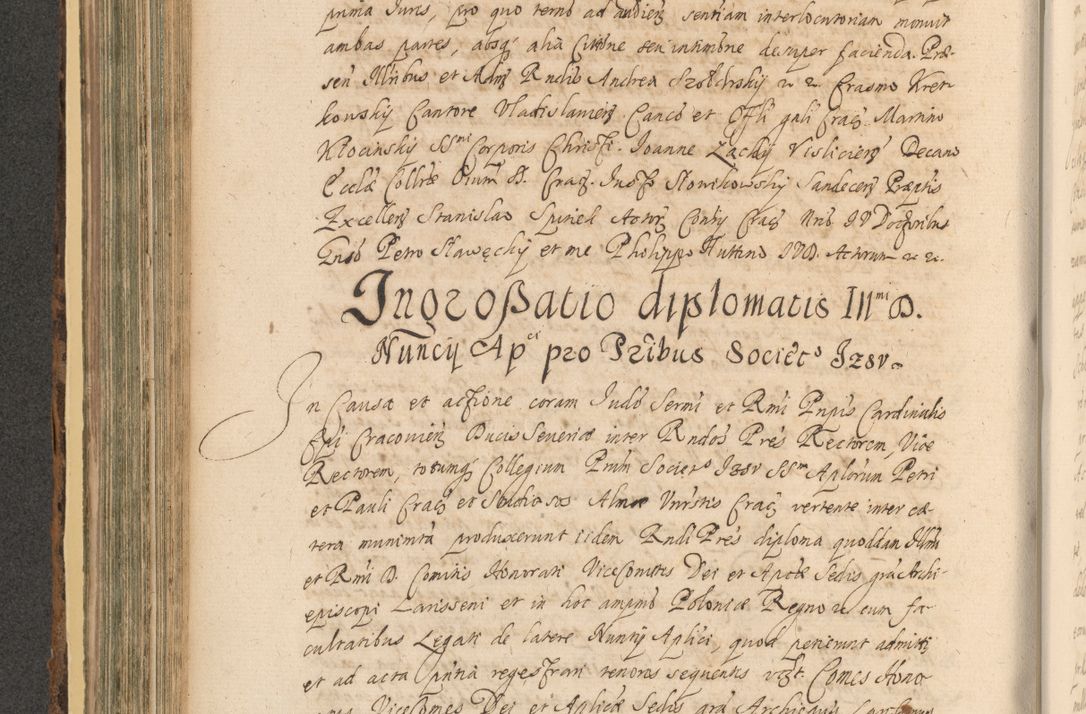 prima Iuris, pro quo termo ad audien̄ sentiam interlocutoriam monuit
ambas partes, absq̨ alia Cittne seu intimōne desuper facienda. Præ-
sen Illribus et Admōd Rndis Andrea Szołdrskÿ ꝛc ꝛc Erasmo Kret-
kowskÿ Cantore Vladislauien̄ Canco et Offli gnli Crac. Martino
Kłocinskÿ SSmi Corporis Christi. Ioanne Lackÿ Vislicien̄ Decano
Ecclæ Collræ Oium SS. Crac. Iusto Słowikowskÿ Sandecen̄ Præptis
Excellen̄ Stanislao Spinek Actor Consry Crac Nris IV Doctoribus
Gnso Petro Sławęckÿ et me Philippo Huttino IVD. Actorum ꝛc ꝛc.
Ingroßatio diplomatis Illmi D.
Nuncÿ Apci pro Pribus Societs Iesv.
In Causa et actione coram Iudō Sermi et Rmi Pnpis Cardinalis
Epi Cracovien̄ Ducis Severiæ inter Rndos Pres Rectorem, Vice
Rectorem, totumq̨ Collegium Prum Societs Iesv SSm Aplorum Petri
et Pauli Crac et Studiosos Almæ Vnrstis Crac vertente inter cæ-
tera munimta produxerunt iidem Rndi Pres diploma quoddam Illmi
et Rmi D. Comitis Honorati ViceComitis Dei et Apcæ Sedis gra Archi-
episcopi Larisseni et in hoc ampmo Poloniæ Regno ꝛc cum fa-
cultatibus Legati de latere Nuntÿ Aplici, quod petierunt admitti
et ad acta pntia regestrari tenoris sequentis vizt. Comes Hono-
ratus ViceComes Dei et Aplicæ Sedis gra Archiepus Larissenus